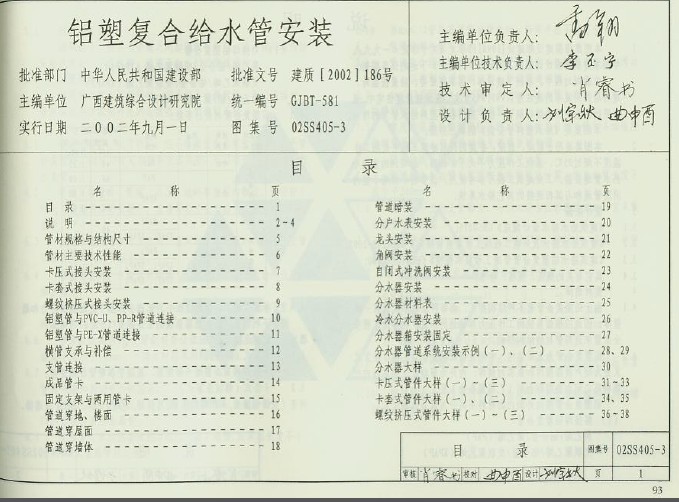 铝塑复合给水管安装
批准部门 中华人民共和国建设部 批准文号 建质[2002]186号
主编单位 广西建筑综合设计研究院 统一编号 GJBT-581
实行日期 二00二年九月一日 图集号 02SS405-3
主编单位负责人:
主编单位技术负责人:
技术审定人: 肖睿书
设计负责人:
目 录
名 称 页
目 录 1
说 明 2-4
管材规格与结构尺寸 5
管材主要技术性能 6
卡压式接头安装 7
卡套式接头安装 8
螺纹挤压式接头安装 9
铝塑管与PVC-U、PP-R管道连接 10
铝塑管与PE-X管道连接 11
横管支承与补偿 12
支管连接 13
成品管卡 14
固定支架与两用管卡 15
管道穿地、楼面 16
管道穿屋面 17
管道穿墙体 18
名 称 页
管道暗装 19
分户水表安装 20
龙头安装 21
角阀安装 22
自闭式冲洗阀安装 23
分水器安装 24
分水器材料表 25
冷水分水器安装 26
分水器箱安装固定 27
分水器管道系统安装示例(一)、(二) 28、29
分水器大样 30
卡压式管件大样(一)~(三) 31-33
卡套式管件大样(一)、(二) 34、35
螺纹挤压式管件大样(一)~(三) 36-38
目 录 图集号 02SS405-3
审核 肖睿书 校对 设计 页 1
93